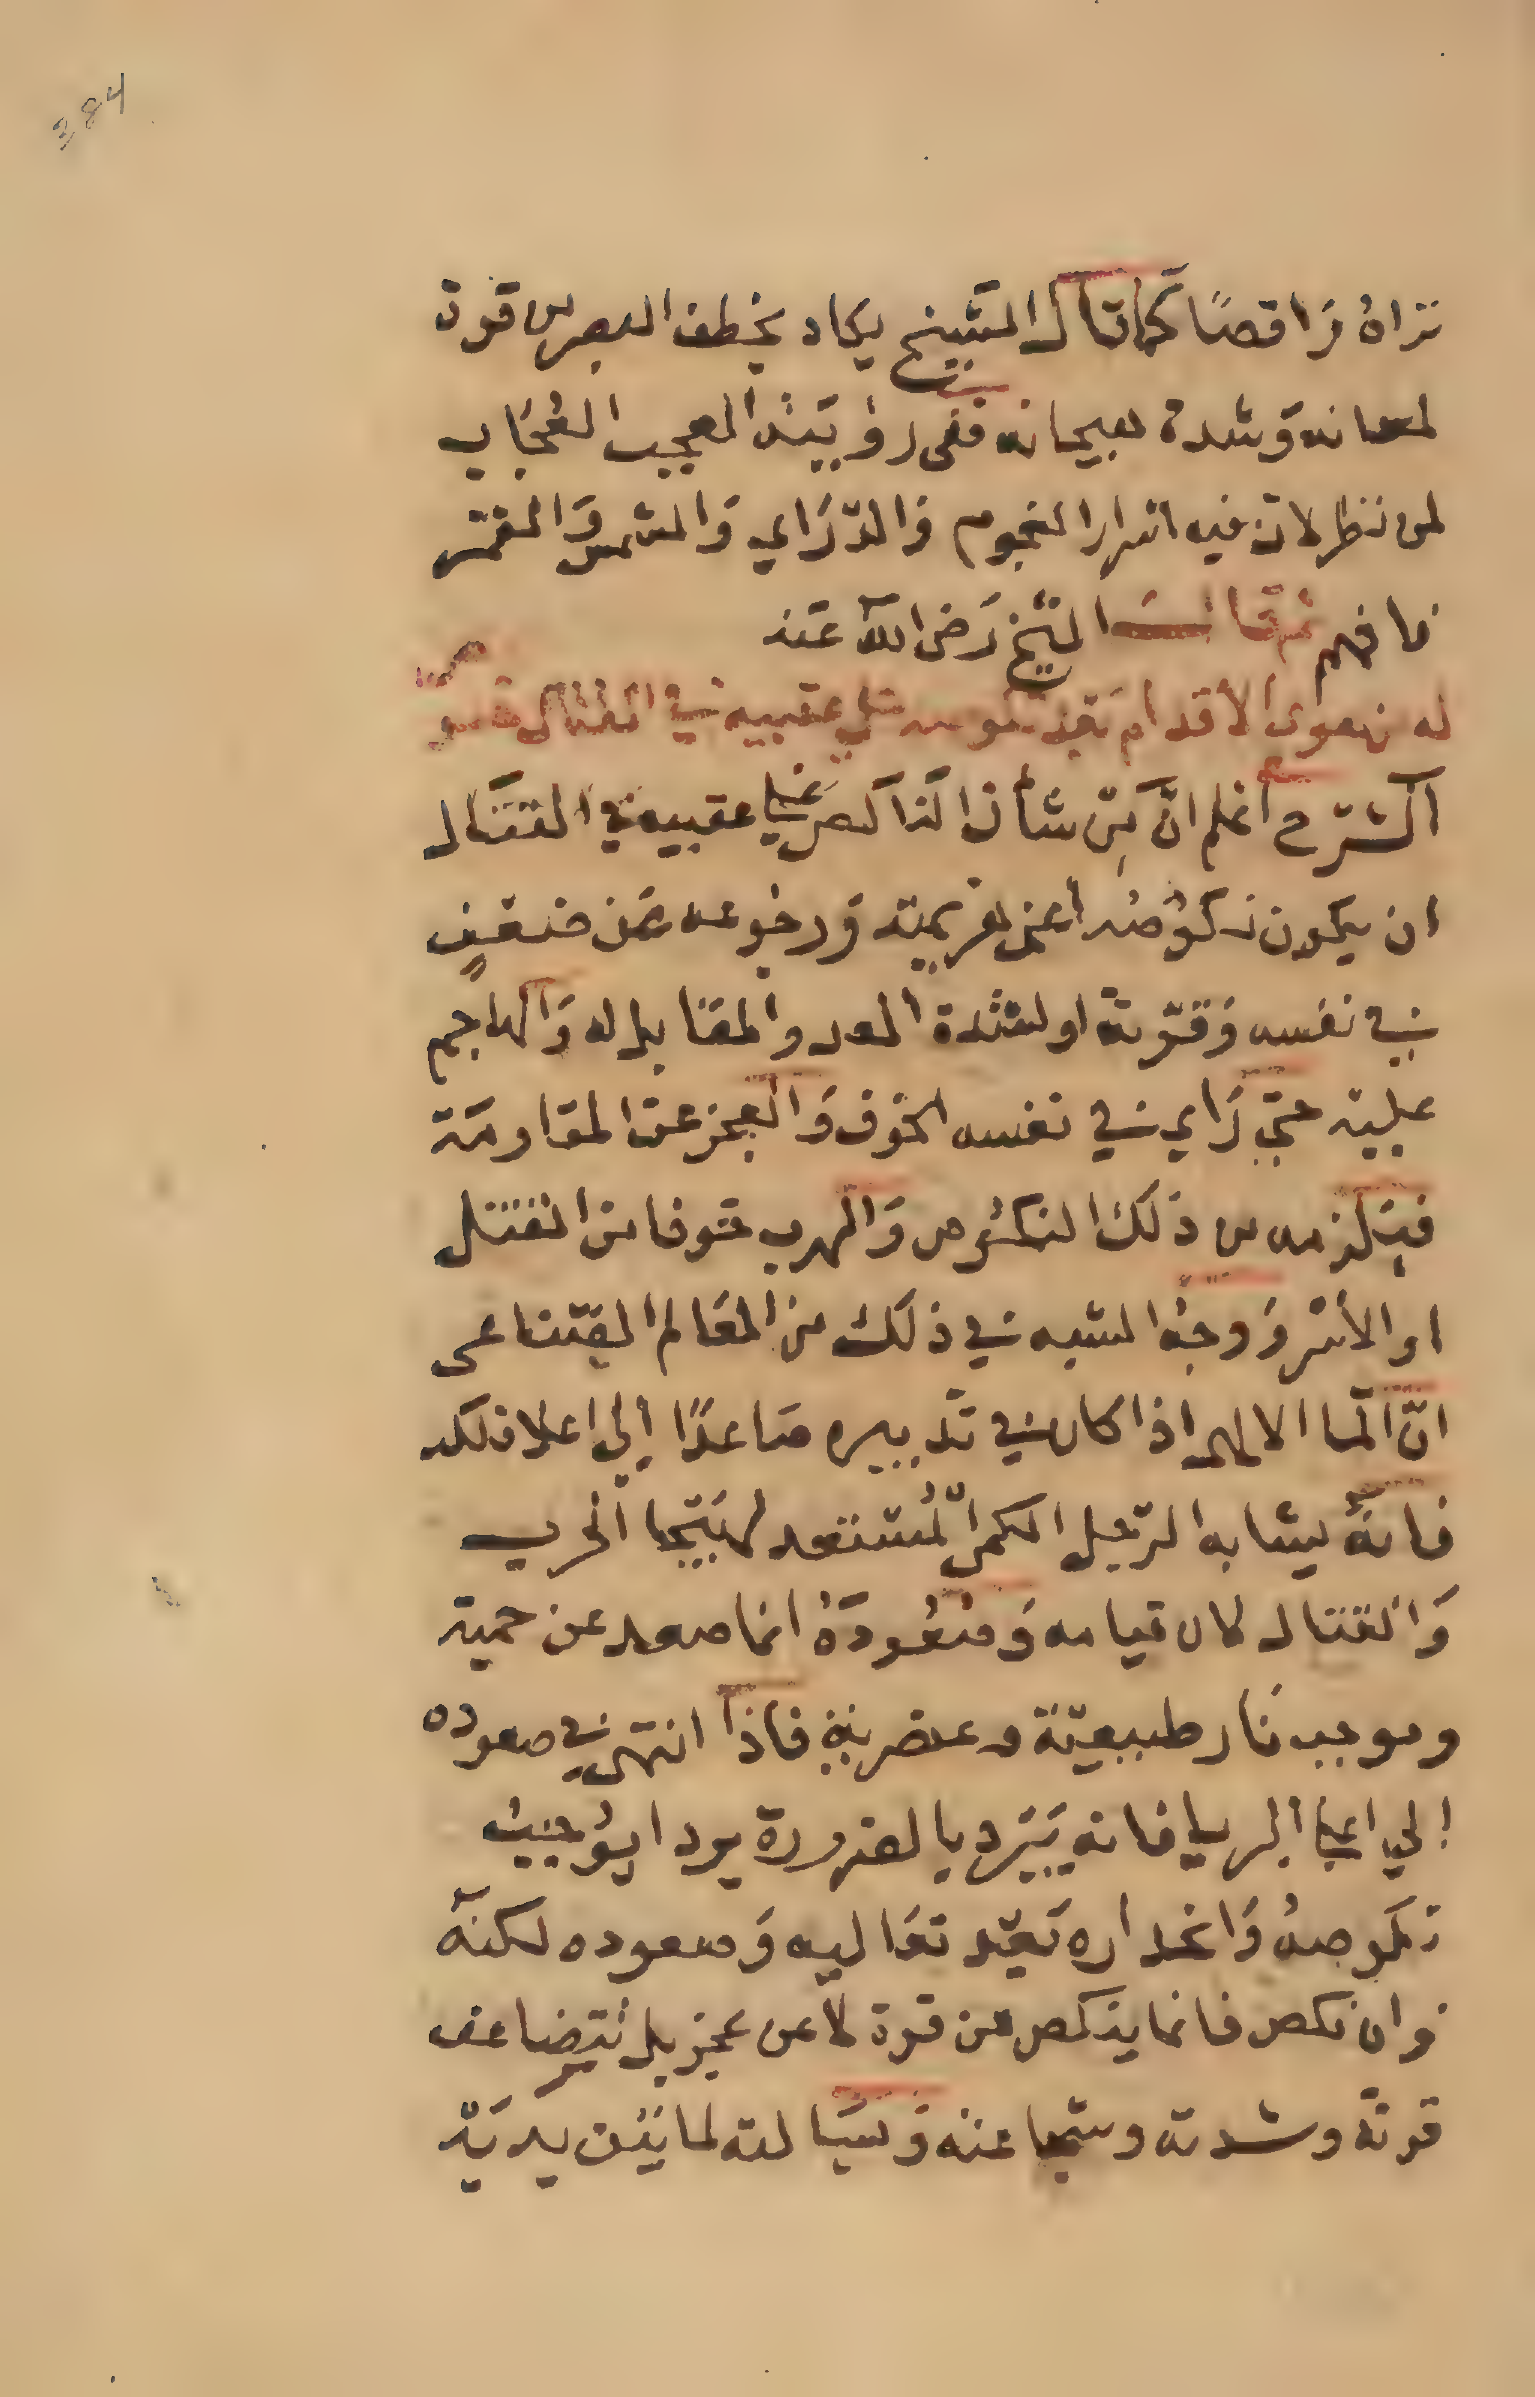 384
تراهُ رَاقصًا كما قال الشيخ يكاد يخطف البصر من قوة
لمعانه وَشدة هيجانه ففى رؤيته العجب العُجَاب
لمن نظر لان فيه اسرار النجوم وَالدّرَاري وَالشمس وَالقمَر
فافهم ثم قال الشيخ رَضى الله عَنه
له نهوض الاقدام بَعد نكوصه على عقبيه في القتال
الشرح اعلم انَّ مِن شأن الناكص على عقبيه في القتَال
ان يكون نكوُصُه اعنى هزيمته وَرجوعه عَن ضعفٍ
في نفسه وَقوّته او لشدة العدو المقابل له وَالهاجم
عليه حتى رَاي في نفسه الخوف وَالعجز عن المقاومَة
فيَلزمه من ذلك النكوُص وَالهرب خَوفا من القتل
او الأسْر وَوجهُ الشبه في ذلك من المعَالم القيناعى
انّ الما الالهى اذا كان في تدبيره صَاعدًا إلى اعلا فلكه
فانهُ يشابه الرجل الكمى المُستعد لهَيجَا الحرب
وَالقتال كان قيامه وَصُعُودَهُ انما صعد عن حمية
وموجب نَار طبيعيّة وعنصريّة فاذا انتهى في صعوده
إلى اعلى البربا فانه يَبرَد بالضرورة بردا يوُجبُ
نكوصهُ وَانحداره بَعد تعَاليه وَصعوده لكنّهُ
وان نكص فانما ينكص عن قوة لا عن عجز بل تتضاعف
قوته وشدته وشجاعته وَبسَالته لما بَيْن يديَه